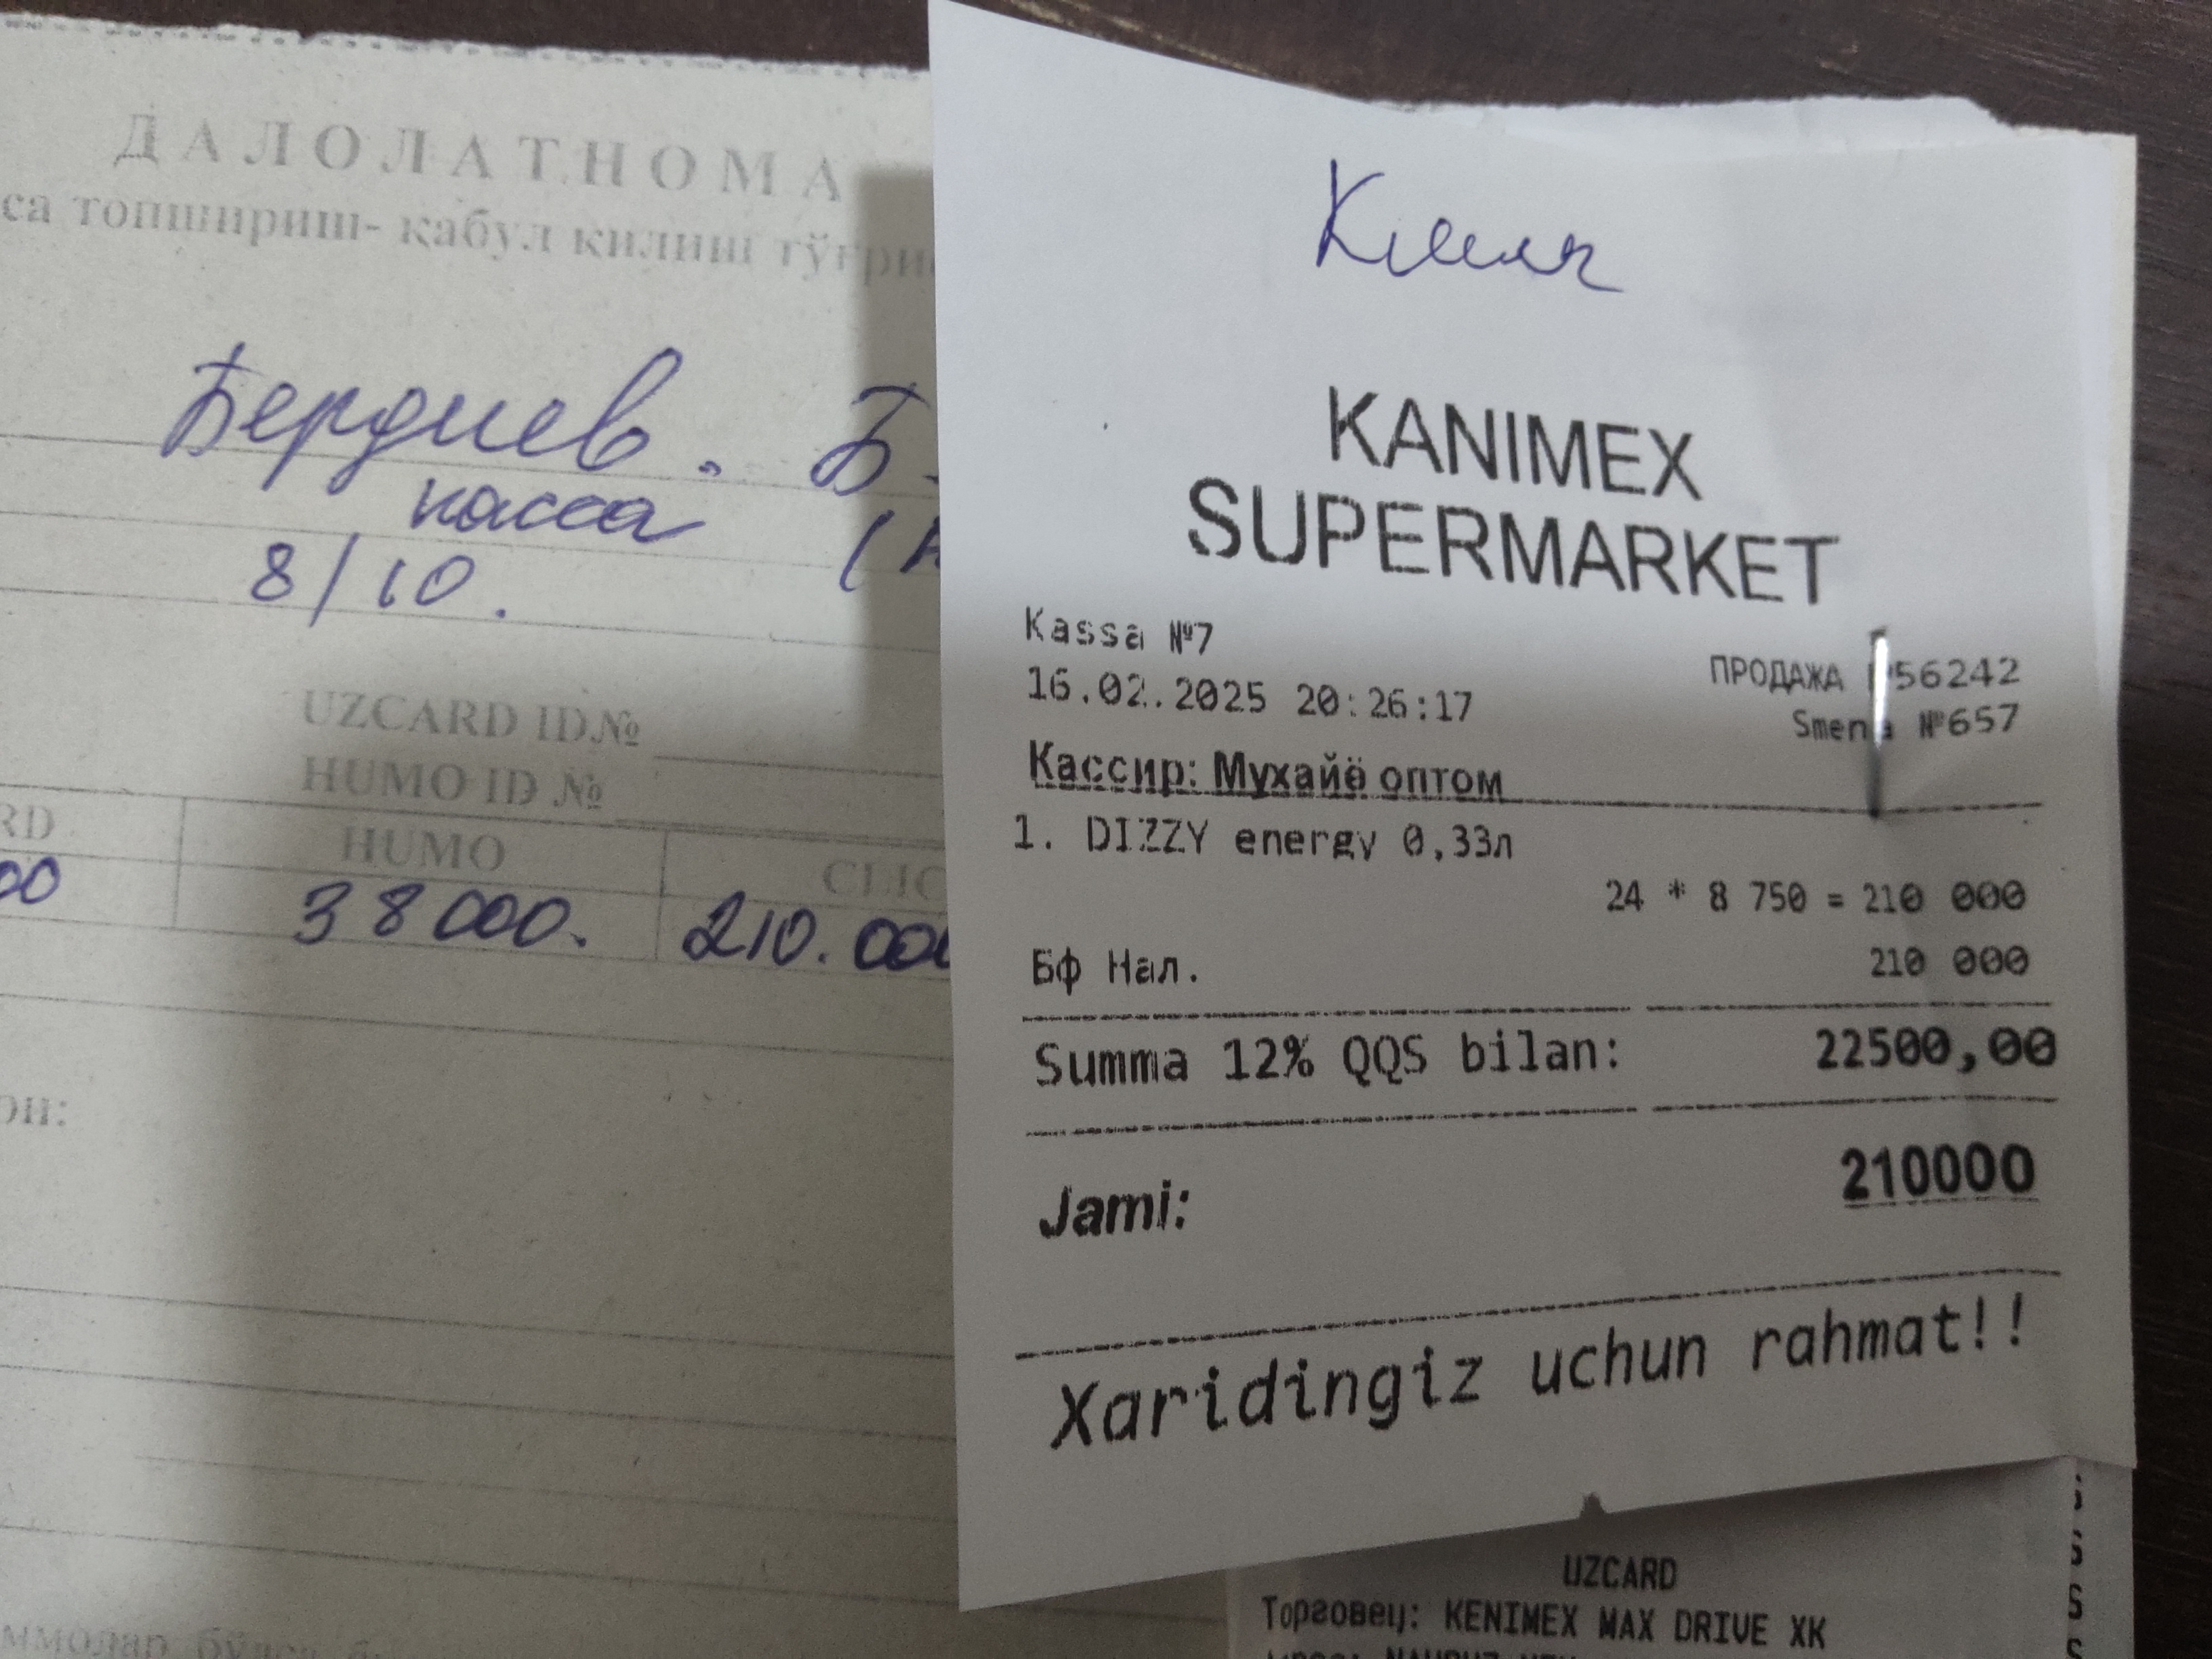 ДАЛОЛАТНОМА
са топшириш- қабул қилиш тўғри
Бердиев. Б.
касса
8/10.
UZCARD ID№
HUMO ID №
RD
HUMO
CLIC
00
38000.
210.000
он:
KANIMEX
SUPERMARKET
Kassa №7
ПРОДАЖА №56242
16.02.2025 20:26:17
Smena №657
Кассир: Мухайё оптом
1. DIZZY energy 0,33л
24 * 8 750 = 210 000
Бф Нал. 210 000
Summa 12% QQS bilan: 22500,00
Jami: 210000
Xaridingiz uchun rahmat!!
UZCARD
Торговец: KENIMEX MAX DRIVE XK